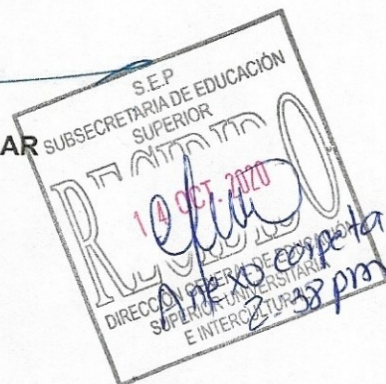 AR
S.E.P
SUBSECRETARIA DE EDUCACIÓN
SUPERIOR
RECIBIDO
14 OCT. 2020
DIRECCIÓN GENERAL DE EDUCACIÓN
SUPERIOR UNIVERSITARIA
E INTERCULTURAL
Anexo carpeta
2:38 pm